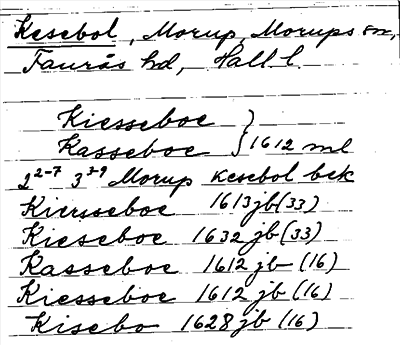 Kesebol, Morup, Morups sn,
Faurås hd, Hall l.
Kiesseboe
Kasseboe } 1612 ml
2²⁻⁷ 3³⁻⁹ Morup kesebol bek
Kiersseboe 1613 jb (33)
Kieseboe 1632 jb (33)
Kasseboe 1612 jb (16)
Kiesseboe 1612 jb (16)
Kisebo 1628 jb (16)